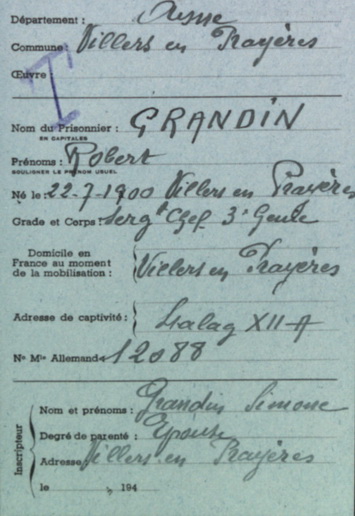 Département : Aisne
Commune : Villers en Prayères
Œuvre :
T
Nom du Prisonnier : GRANDIN
EN CAPITALES
Prénoms : Robert
SOULIGNER LE PRÉNOM USUEL
Né le : 22-7-1900 Villers en Prayères
Grade et Corps : Sergt Chef 3e Génie
Domicile en
France au moment
de la mobilisation :
Villers en Prayères
Adresse de captivité : Stalag XII-A
No Mle Allemand : 12088
Inscripteur
Nom et prénoms : Grandin Simone
Degré de parenté : Epouse
Adresse Villers en Prayères
le , 194